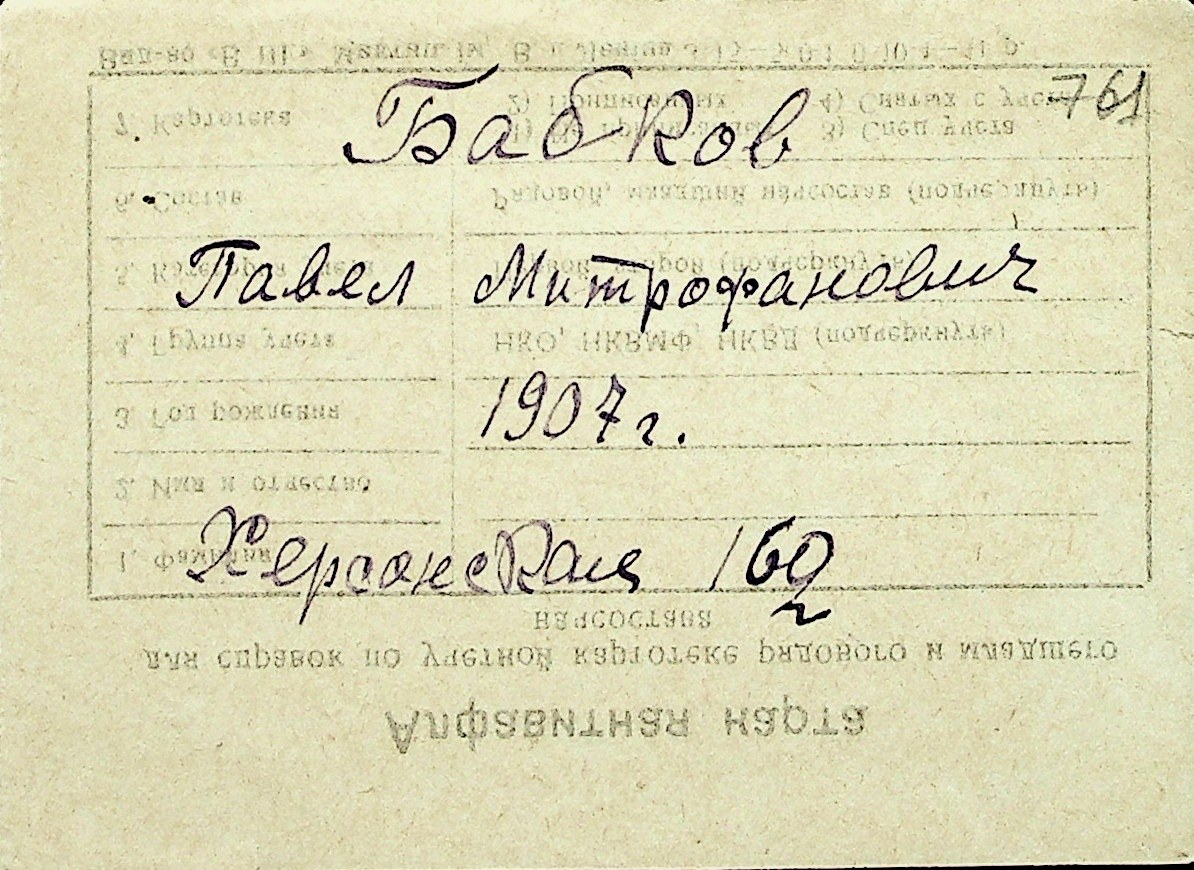 Бабков 761
7. Картотека 2) Приписанных 4) Снятых с учета
3) Спец учета
6. Состав Рядовой, младший начсостав (подчеркнуть)
Павел Митрофанович
4. Группа учета НКО, НКВМФ, НКВД (подчеркнуть)
1907 г.
3. Год рождения
2. Имя и отчество
Херсонская
1. Фамилия
начсостава
для справок по учетной картотеке рядового и младшего
Алфавитная карта